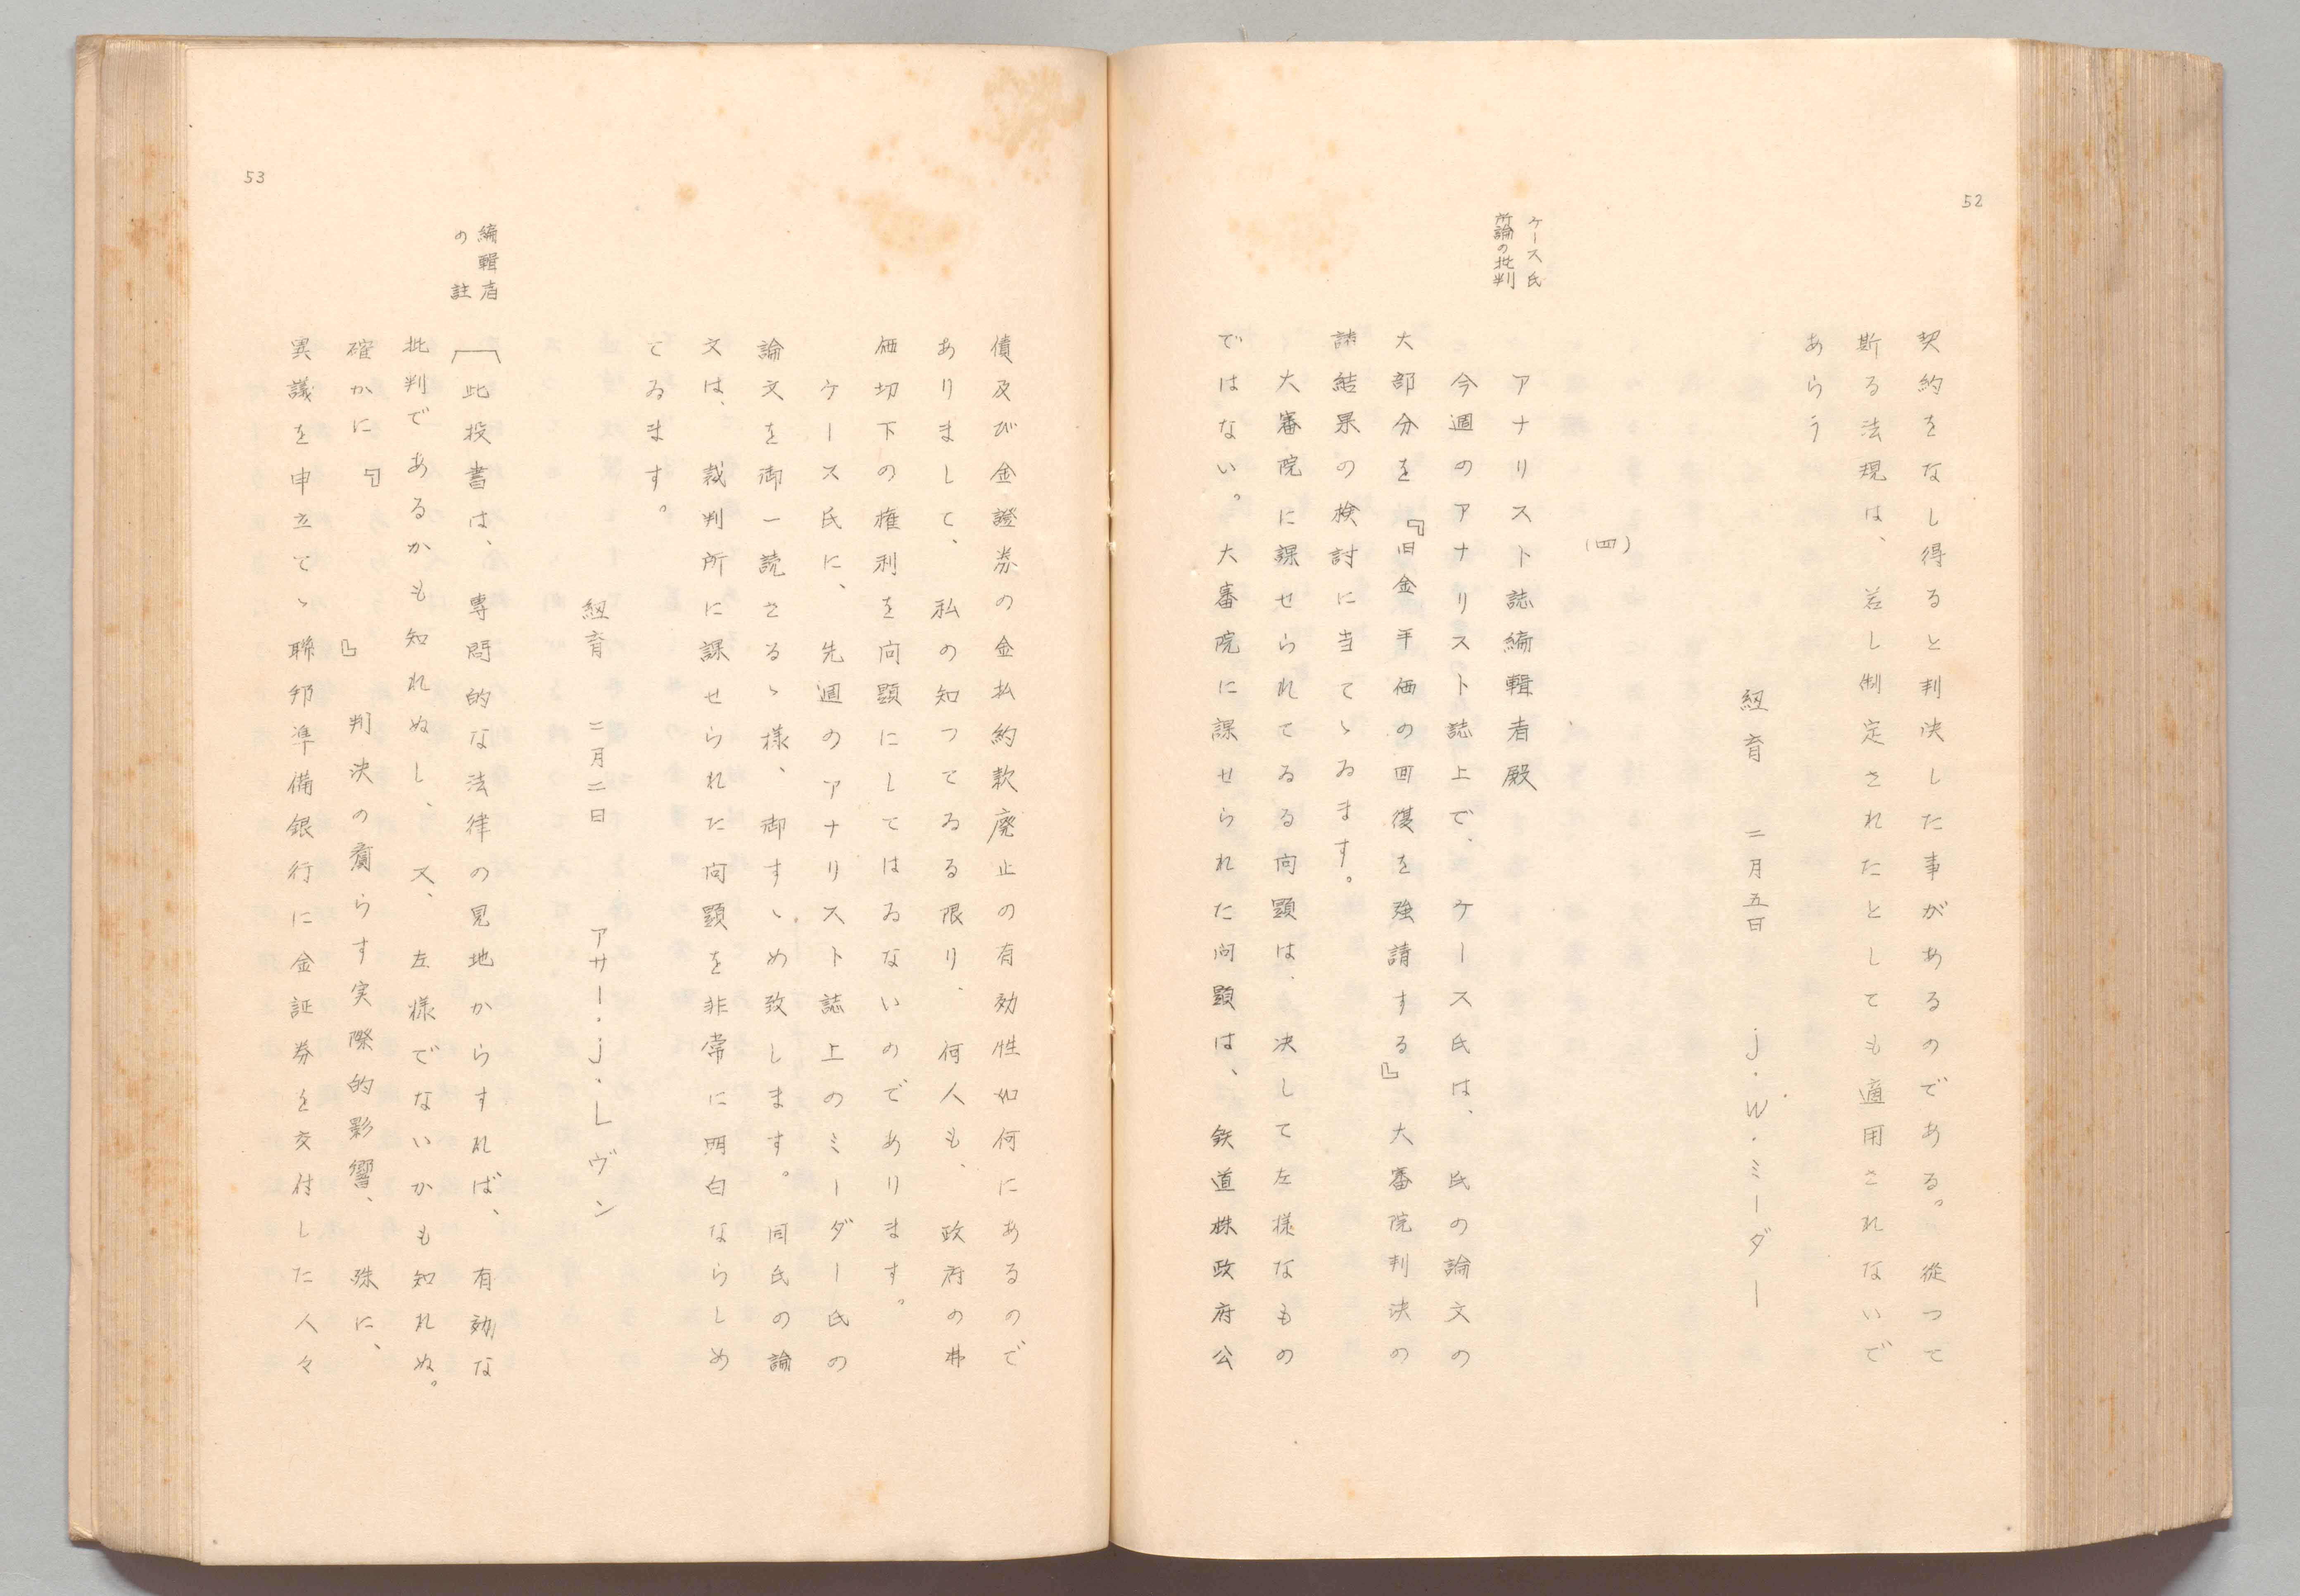 52
契約をなし得ると判決した事があるのである。従つて
斯る法規は、若し制定されたとしても適用されないで
あらう
紐育 二月五日 J.W.ミーダー
(四)
ケース氏
所論の批判
アナリスト誌編輯者殿
今週のアナリスト誌上で、ケース氏は、氏の論文の
大部分を『旧金平価の回復を強請する』大審院判決の
諸結果の検討に当てゝゐます。
大審院に課せられてゐる問題は、決して左様なもの
ではない。大審院に課せられた問題は、鉄道株政府公
債及び金證券の金払約款廃止の有効性如何にあるので
ありまして、私の知つてゐる限り、何人も、政府の弗
価切下の権利を問題にしてはゐないのであります。
ケース氏に、先週のアナリスト誌上のミーダー氏の
論文を御一読さるゝ様、御すゝめ致します。同氏の論
文は、裁判所に課せられた問題を非常に明白ならしめ
てゐます。
紐育 二月二日 アサー.J.レヴン
編輯者
の註
〔此投書は、専問的な法律の見地からすれば、有効な
批判であるかも知れぬし、又、左様でないかも知れぬ。
確かに『』判決の齎らす実際的影響、殊に、
異議を申立てゝ聯邦準備銀行に金証券を交付した人々
53